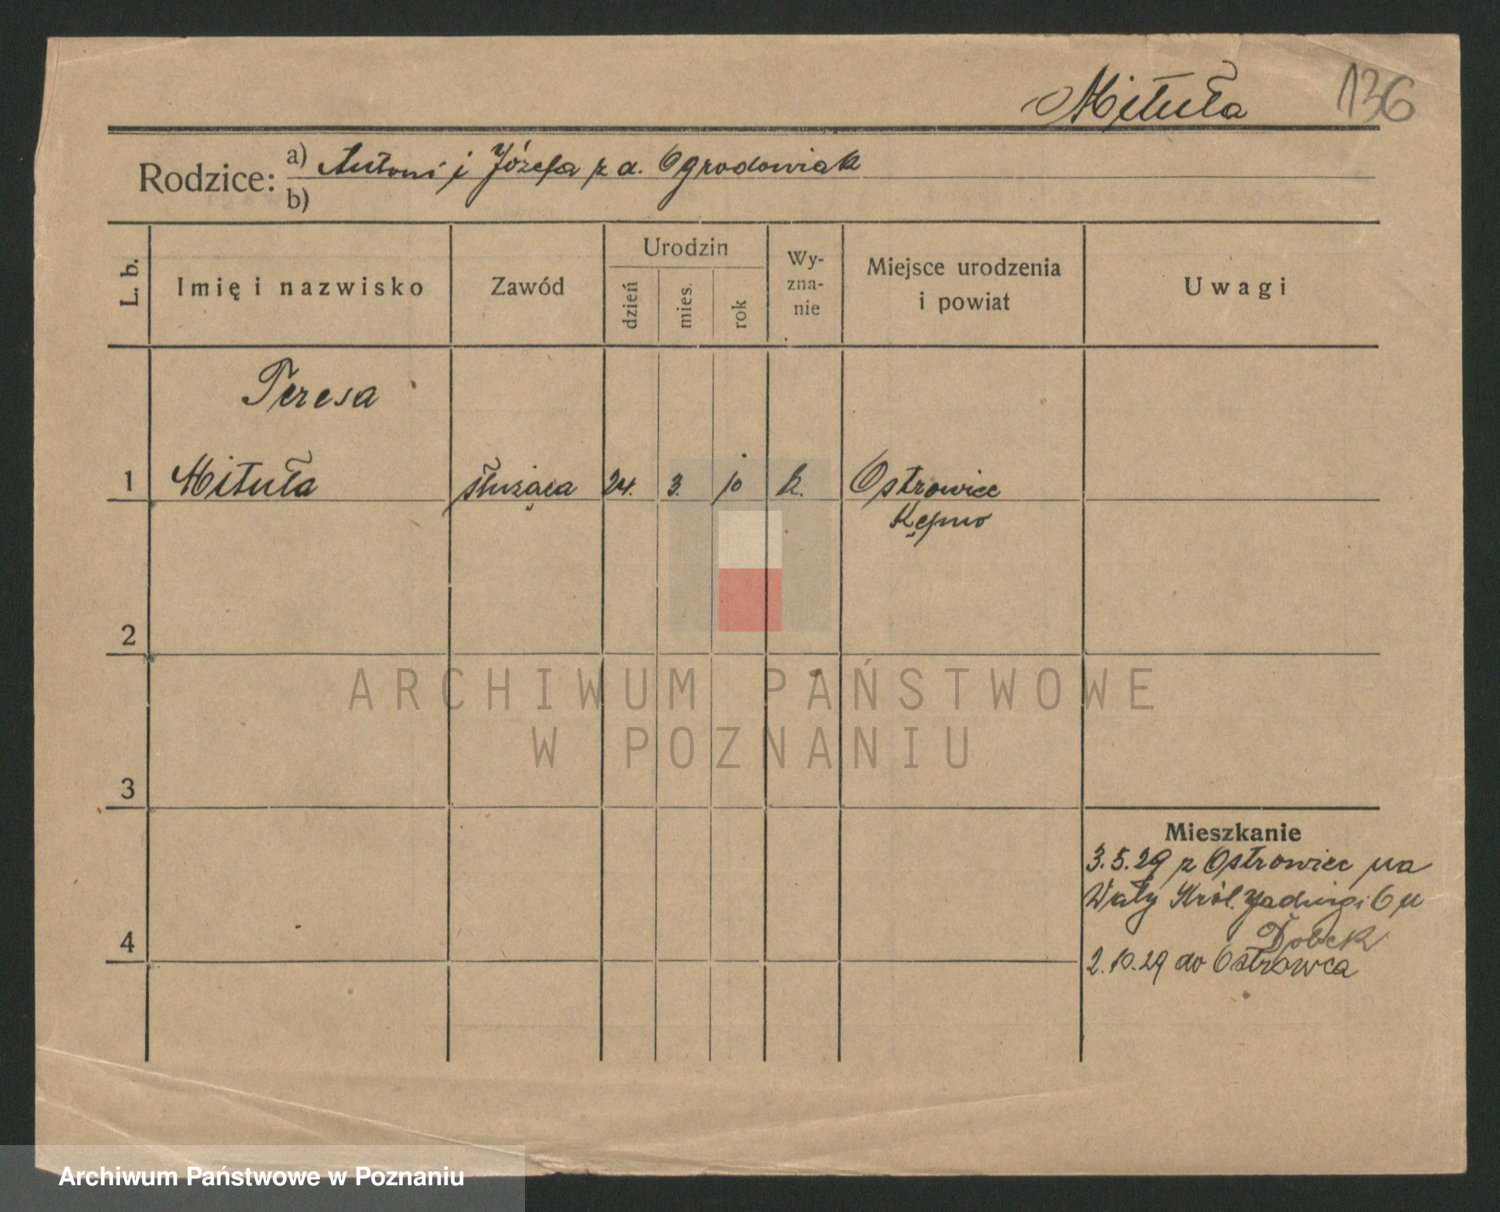 Mituła 136
Rodzice: a) Antoni i Józefa z d. Ogrodowiak
b)
L. b. Imię i nazwisko Zawód Urodzin dzień mies. rok Wy-zna-nie Miejsce urodzenia i powiat Uwagi
Teresa
1 Mituła służąca 24. 3. 10 k. Ostrowiec
Kępno
2
ARCHIWUM PAŃSTWOWE
W POZNANIU
3
Mieszkanie
3.5.29 z Ostrowiec na
Wały Król. Jadwigi 6 u
Dobek
4
2.10.29 do Ostrowca
Archiwum Państwowe w Poznaniu